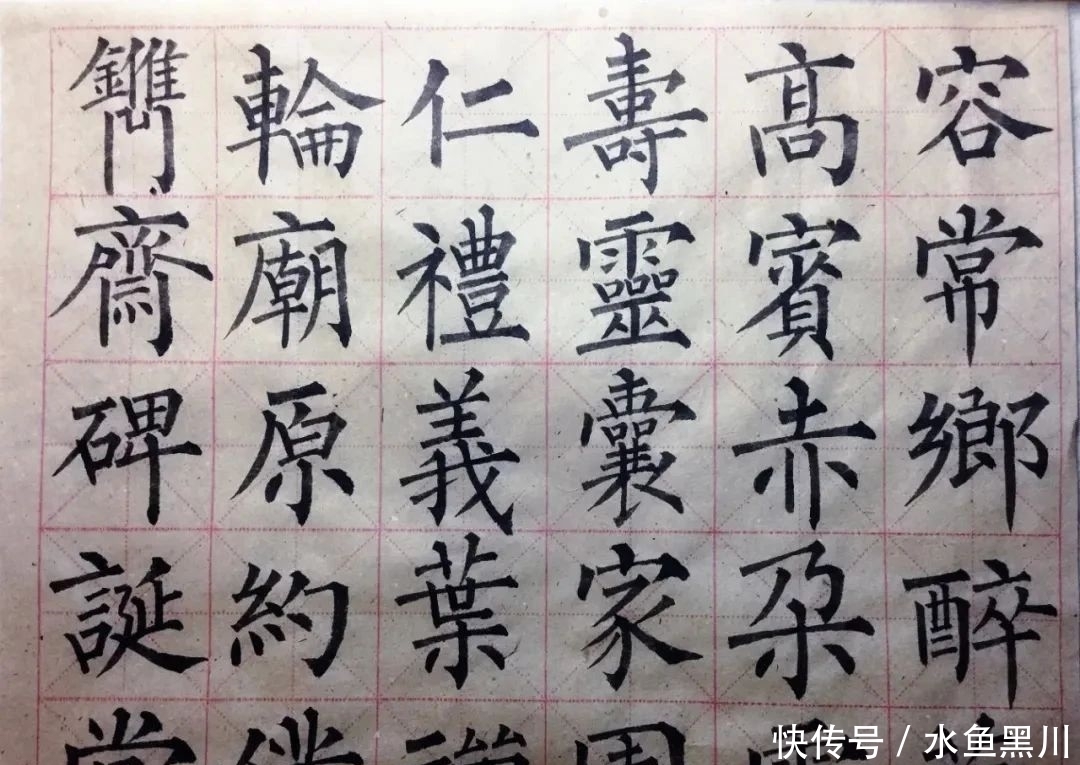 容常鄉醉
髙賓赤朵
壽靈囊家
仁禮義葉
輪廟原約
鐫齋碑誕
快传号 / 水鱼黑川